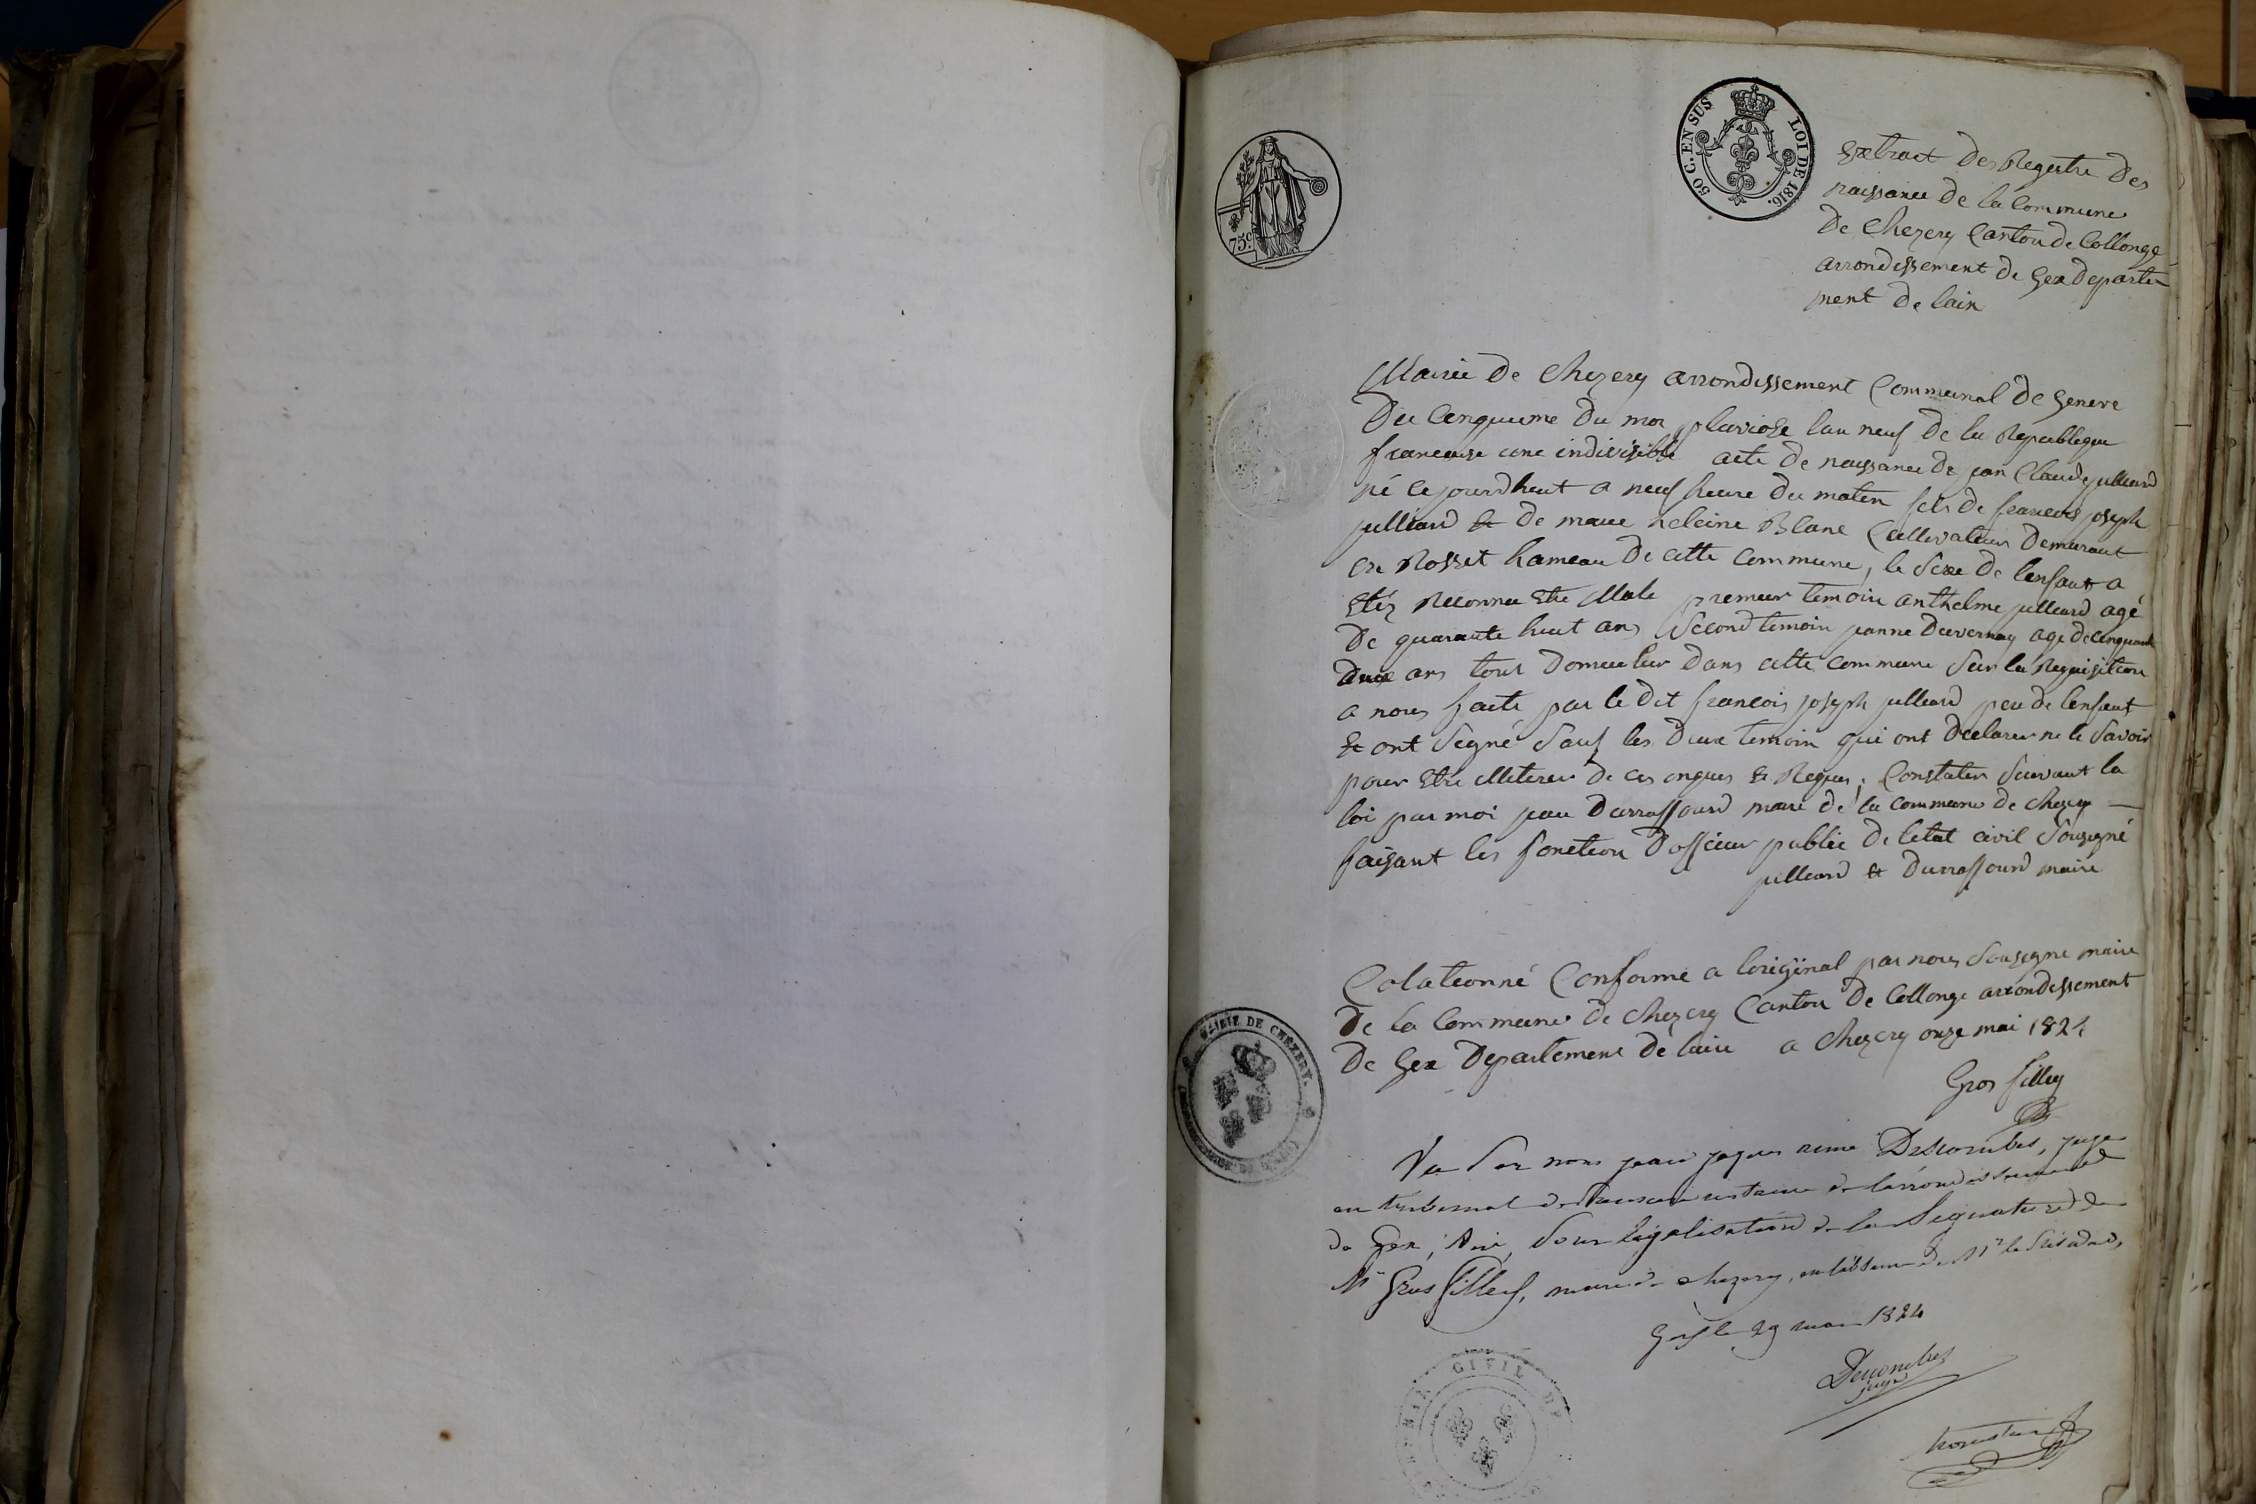 50 C. EN SUS LOI DE 1816.
75c.
Extrait des Registre Des
naissance de la Commune
De Chezery Canton de Collonge
arrondissement de Gex Departe-
ment de lain
Mairie De Chezery arrondissement Communal de Geneve
Du Cenquieme Du moi pluviose lan neuf De la Republique
francaise une indivisible acte De naissance De jan Claude julliard
né cejourdhuit a neuf heure Du maten fils De francois joseph
julliard & De marie heleine Blanc Cultivateur Demeurant
en Rosset hameau De cette commune, le sexe De lenfant a
Etéz Reconnu Etre Male premier temoin anthelme julliard agé
De quarante huit ans Second temoin janne Duvernay age De cenquante
Deux ans tout Domicilier Dans cette commune Sur la Requisition
a nous faite par le Dit francois joseph julliard peu De lenfant
& ont Segné Sauf les Deux temoin qui ont Declarer ne le Savoir
pour Etre elliterer De ces enques & Reques, Constater Suivant la
loi par moi jean Durraffourd maire De la commune De chezery
faisant les fonction D'officier public De letat civil Sousegné
julliard & Durraffourd maire
Colationné Conforme a loriginal par nous Sousegne maire
De la Commune De Chezery Canton De Collonge arrondissement
De Gex Departement De lain a Chezery onze mai 1824
Gros fillex
MAIRIE DE CHEZERY.
Vu Par nous jean jaques rené Descombes, juge
au tribunal de premiere instance de larrondissement
de Gex, Ain, Pour légalisation de la Signature de
Mr Gros fillex, maire de chezery, en labsence de Mr le Président,
Gex le 29 mai 1824
Descombes
juge
CIVIL DE